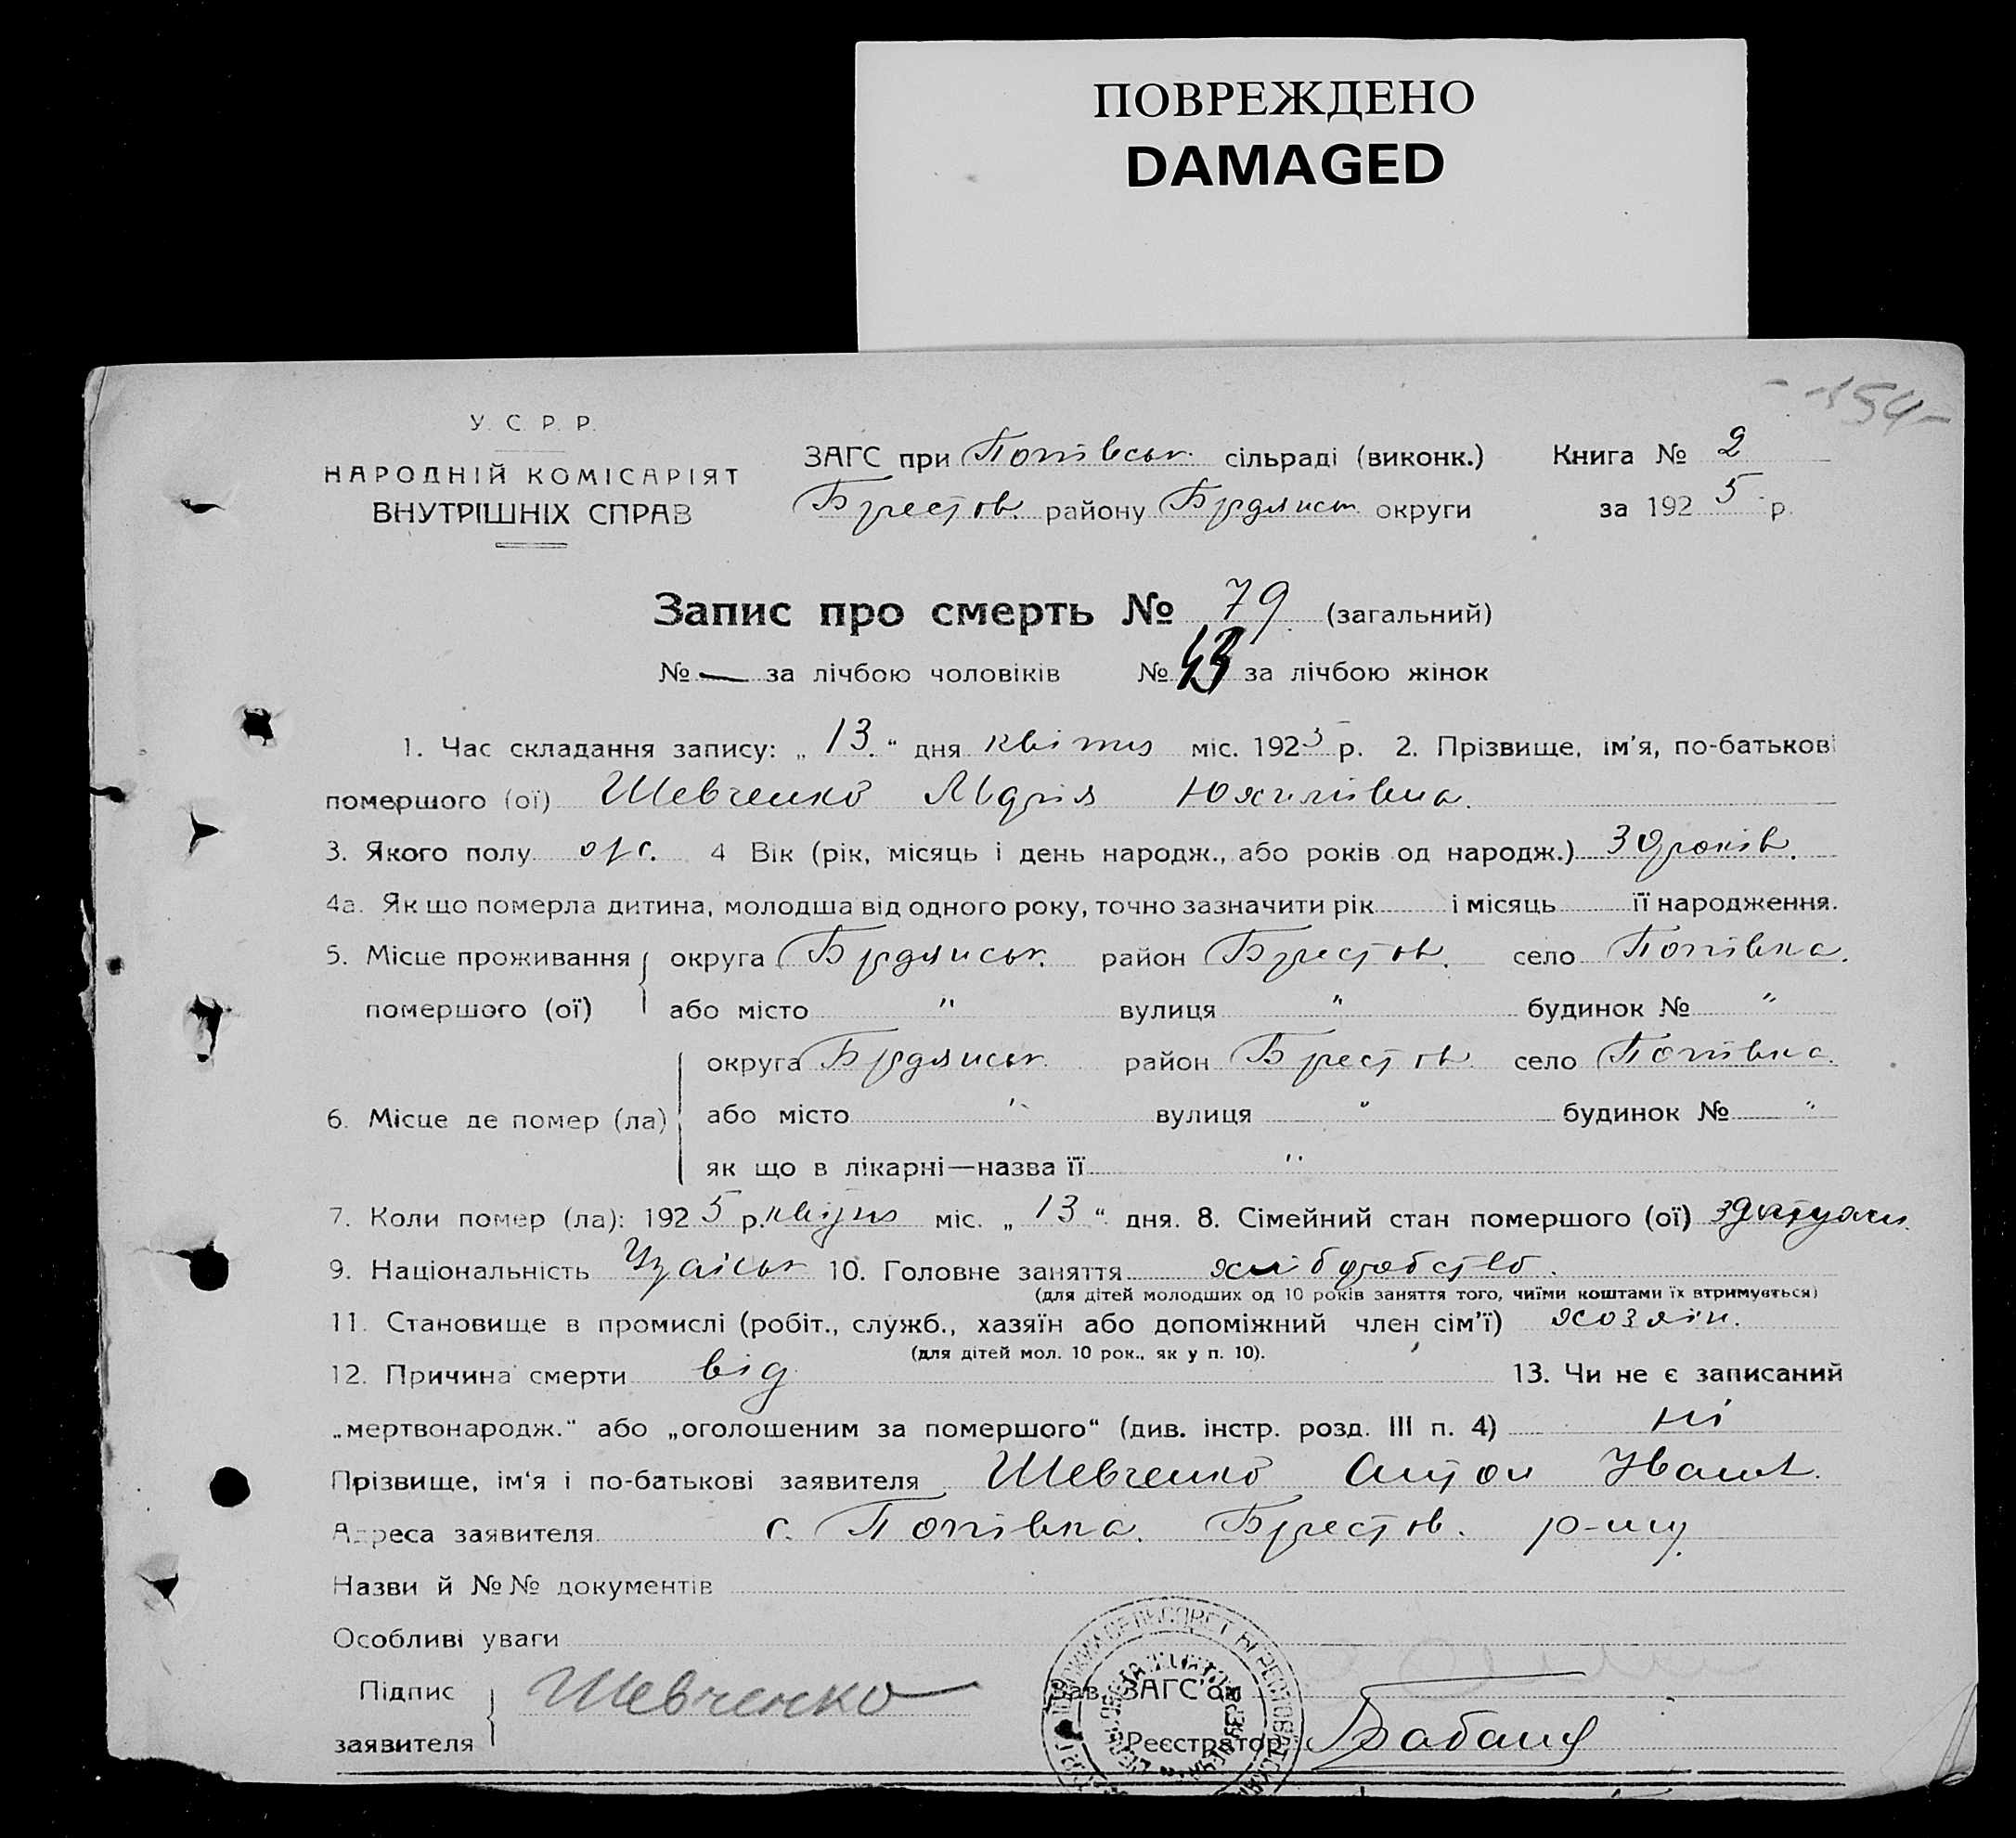 ПОВРЕЖДЕНО
DAMAGED
-154-
У. С. Р. Р.
НАРОДНІЙ КОМІСАРІЯТ
ВНУТРІШНІХ СПРАВ
ЗАГС при Попівськ. сільраді (виконк.) Книга № 2
Берестов. району Бердянськ. округи за 1925 р.
Запис про смерть № 79. (загальний)
№ — за лічбою чоловіків № 43 за лічбою жінок
1. Час складання запису: „13.“ дня квітня міс. 1925 р. 2. Прізвище, ім’я, по-батькові
помершого (ої) Шевченко
3. Якого полу 4 Вік (рік, місяць і день народж., або років од народж.) 30 років.
4а. Як що померла дитина, молодша від одного року, точно зазначити рік і місяць її народження.
5. Місце проживання округа Бердянськ. район Берестов. село Попівка.
помершого (ої) або місто " вулиця " будинок № "
округа Бердянськ. район Берестов. село Попівка.
6. Місце де помер (ла) або місто " вулиця " будинок № "
як що в лікарні—назва її "
7. Коли помер (ла): 1925 р. квітня міс. „13“ дня. 8. Сімейний стан помершого (ої)
9. Національність 10. Головне заняття хліборобство.
(для дітей молодших од 10 років заняття того, чиїми коштами їх втримується)
11. Становище в промислі (робіт., служб., хазяїн або допоміжний член сім’ї) хозяін.
(для дітей мол. 10 рок., як у п. 10).
12. Причина смерти від 13. Чи не є записаний
„мертвонародж.“ або „оголошеним за помершого“ (див. інстр. розд. III п. 4) ні
Прізвище, ім‘я і по-батькові заявителя Шевченко Антон Иванов.
Адреса заявителя с. Попівка. Берестов. р-ну.
Назви й №№ документів
Особливі уваги
Підпис
заявителя Шевченко
Зав. ЗАГС’ом
Реєстратор